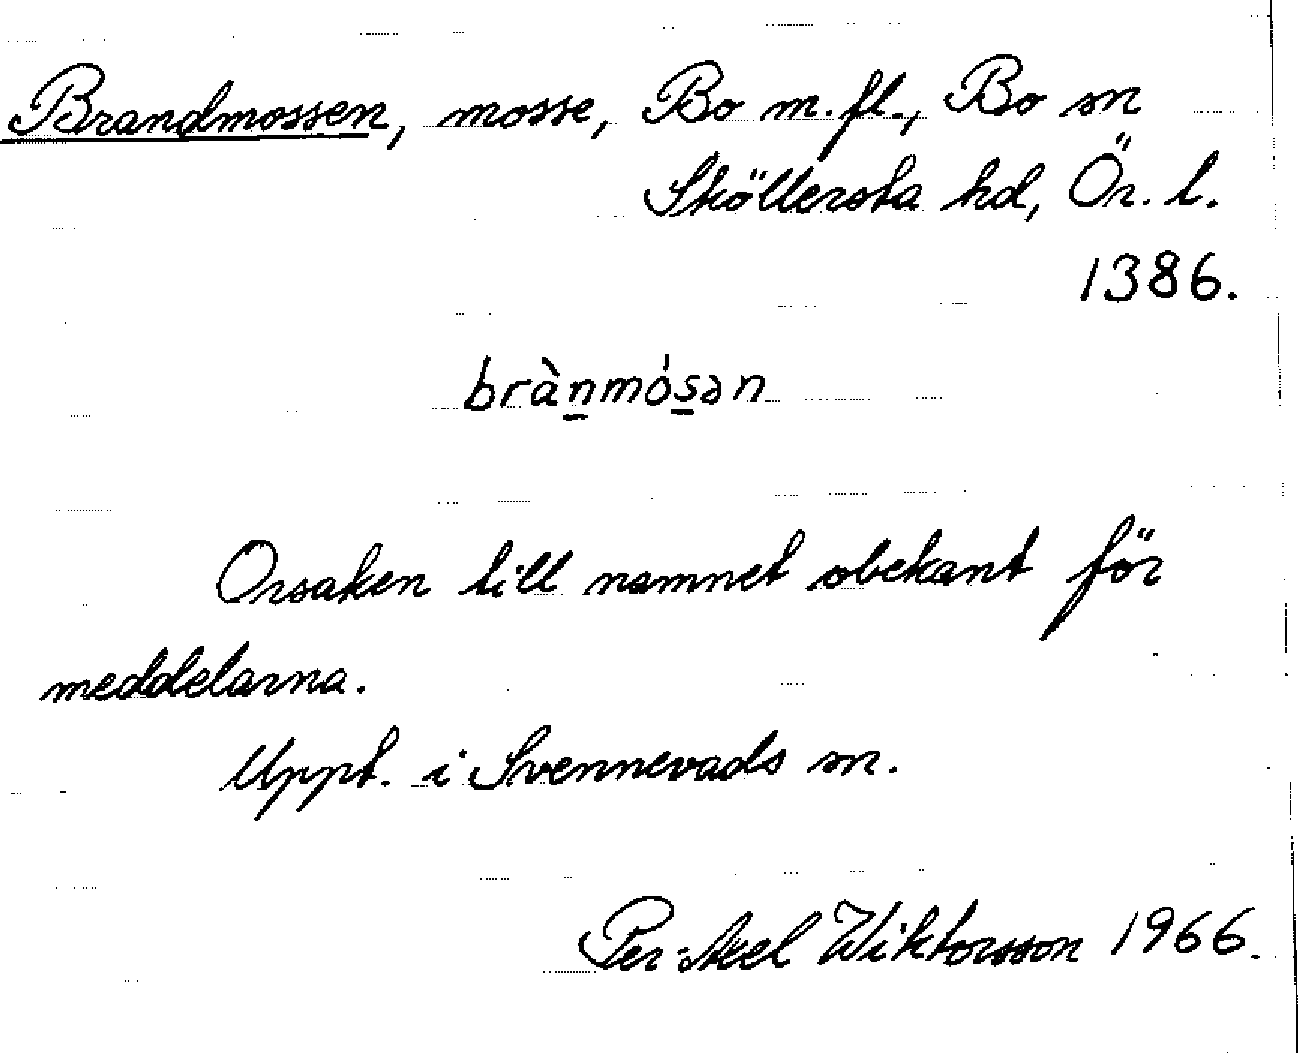 Brandmossen, mosse, Bo m.fl., Bo sn
Sköllersta hd, Ör. l.
1386.
brànmósən
Orsaken till namnet obekant för
meddelarna.
Uppt. i Svennevads sn.
Per-Axel Wiktorsson 1966.